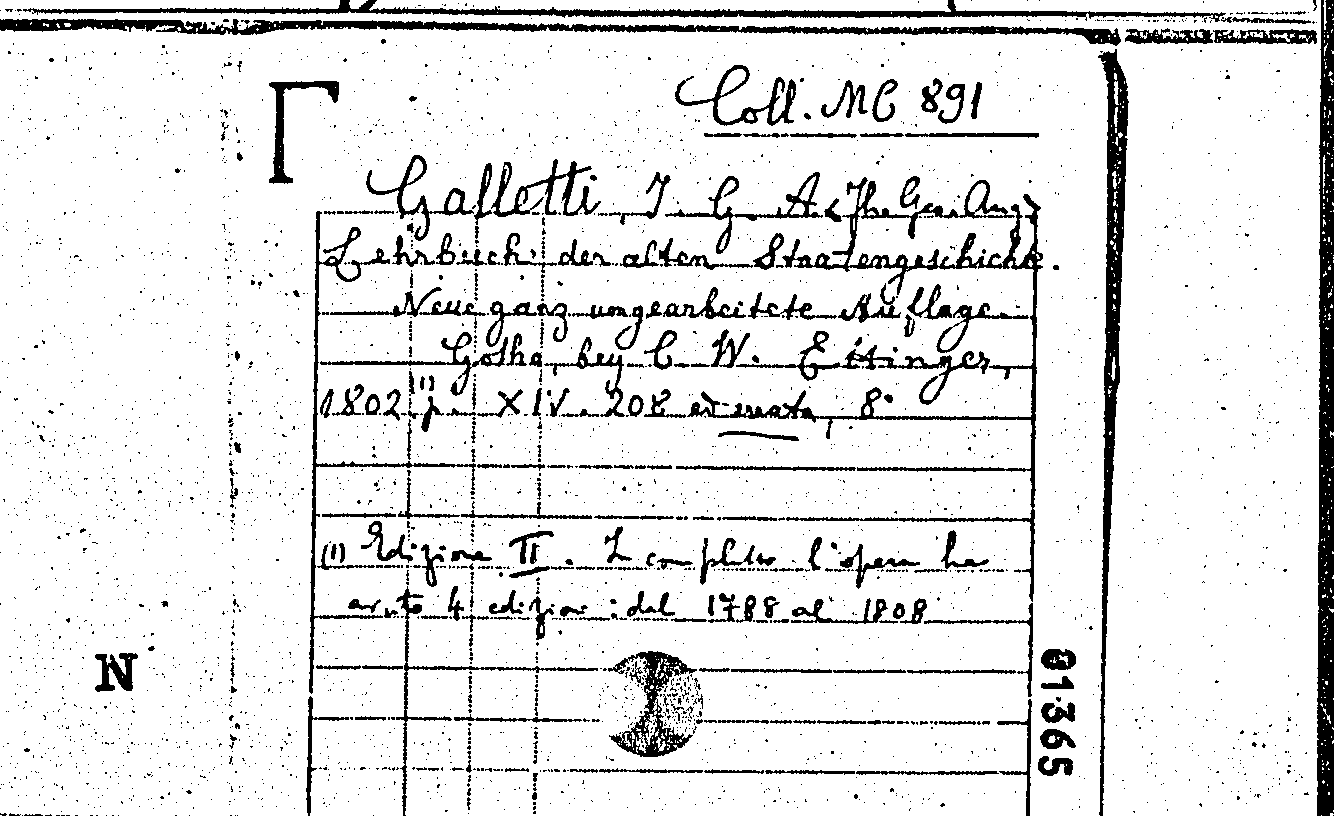 Coll. MC 891
Galletti, J. G. A. <Jh. Geo. Aug>
Lehrbuch der alten Staatengeschichte.
Neue ganz umgearbeitete Auflage.
Gotha, bey C. W. Ettinger,
1802 (1) p. XIV. 208 ed errata, 8°
(1) Edizione II. In complesso l'opera ha
avuto 4 edizioni: dal 1788 al 1808
N
01365